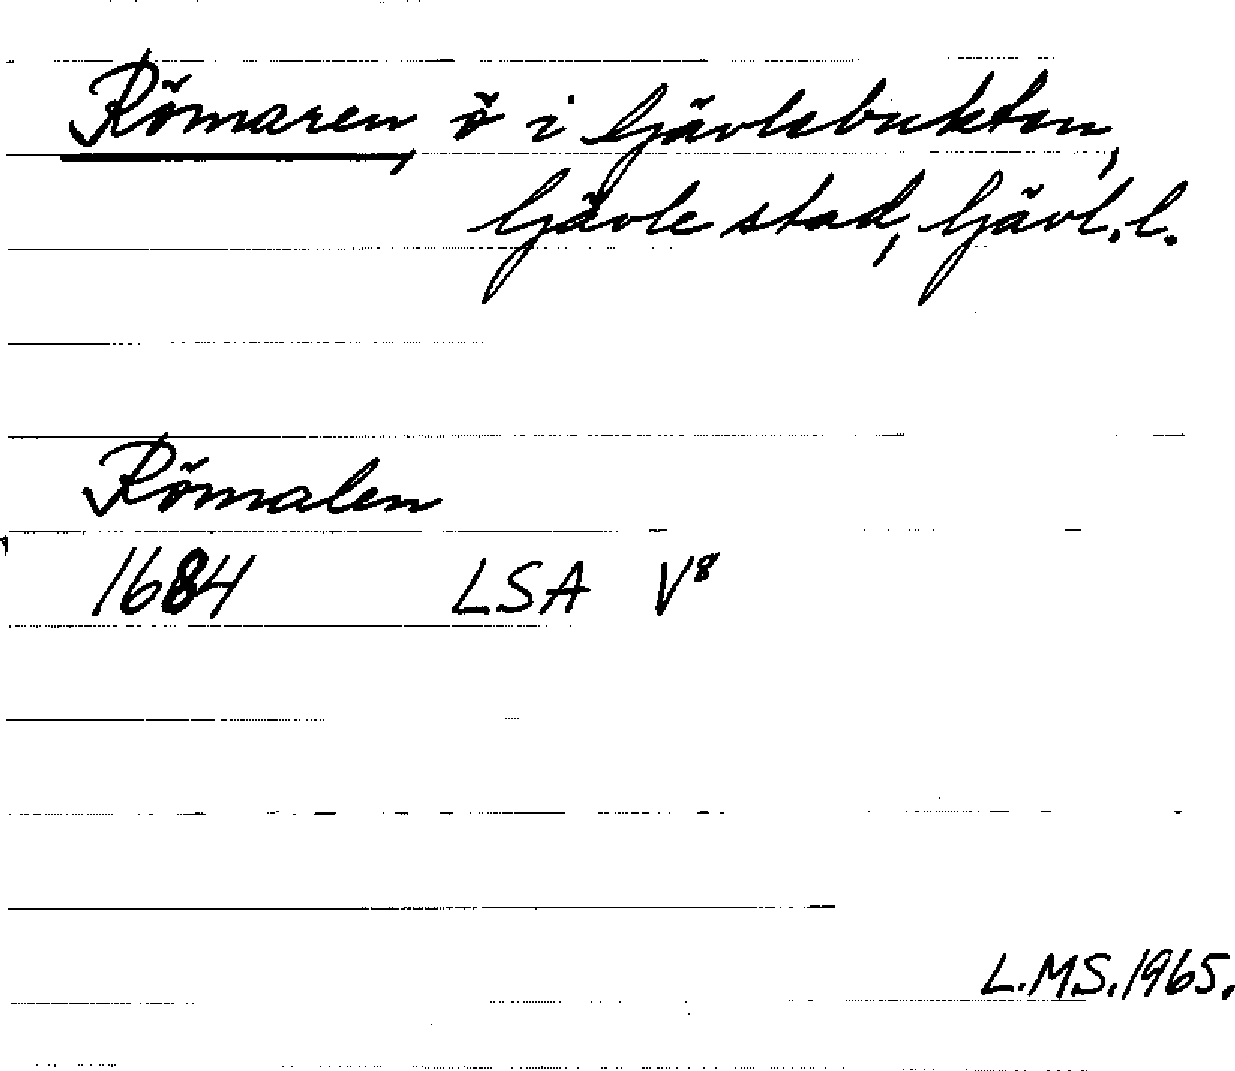 Römaren, ö i Gävlebukten,
Gävle stad, Gävl. l.
Römalen
1684 LSA V⁸
L.MS.1965.